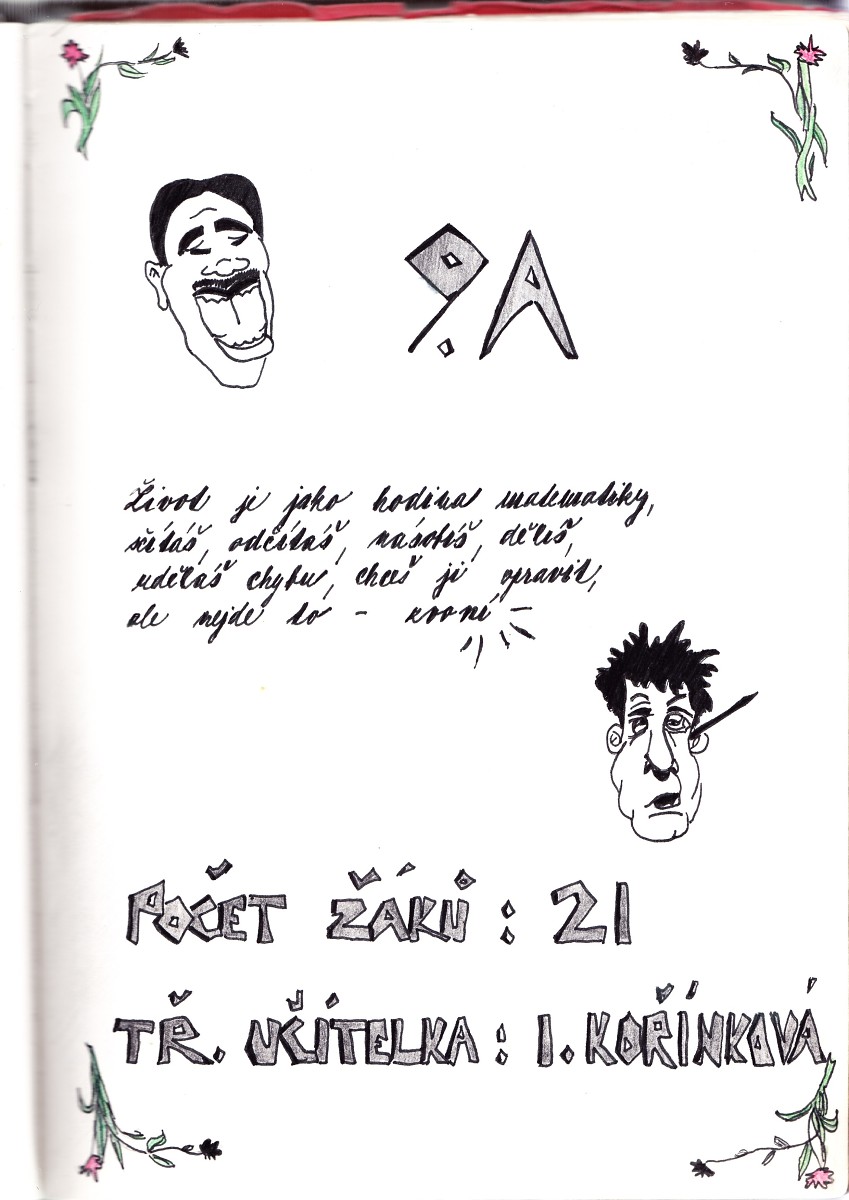 9.A
Život je jako hodina matematiky,
sčítáš, odčítáš, násobíš, dělíš,
uděláš chybu, chceš ji opravit,
ale nejde to - zvoní -
POČET ŽÁKŮ : 21
TŘ. UČITELKA : I. KOŘÍNKOVÁ